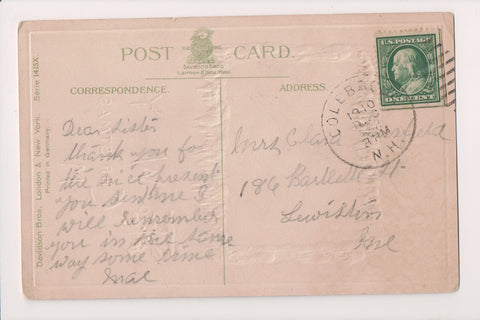 POST CARD.
Davidson Bros.
London & New York.
CORRESPONDENCE.
ADDRESS.
Davidson Bros., London & New York. Serie 1413X.
Printed in Germany.
Dear Sister
thank you for
the nice present
you sent me I
will remember
you in the same
way some time
Mae
Mrs Clara
186 Bartlett St.
Lewiston
Me
U.S. POSTAGE
ONE CENT
COLEB
N.H.